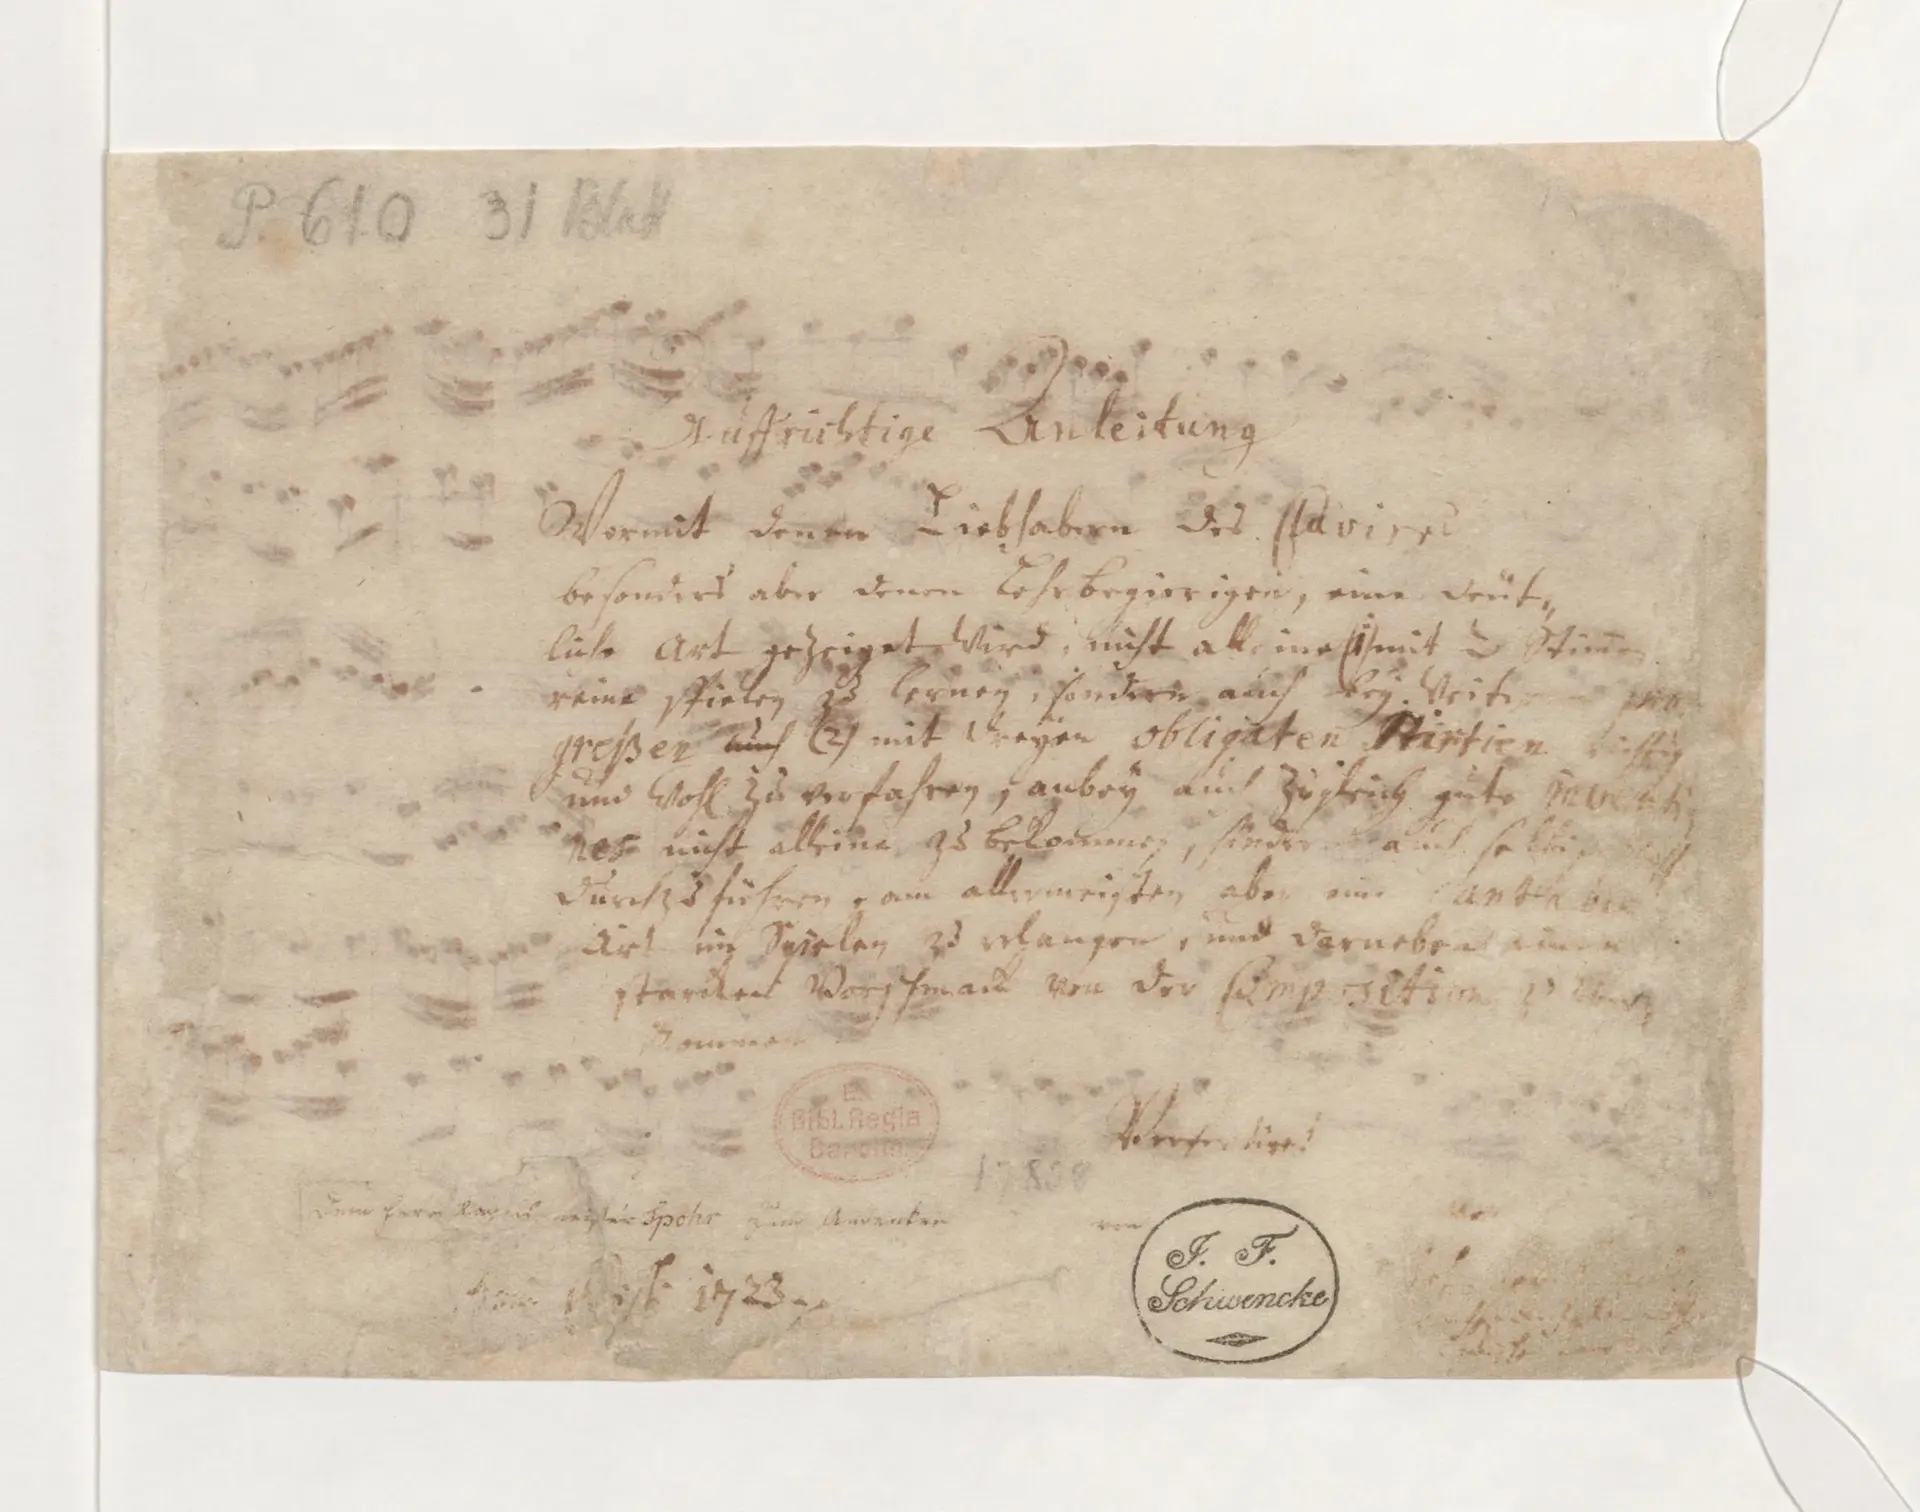 P. 610 31 Blatt
Auffrichtige Anleitung
Wormit denen Liebhabern des Clavires
besonders aber denen Lehrbegierigen, eine deüt„
liche Art gezeiget wird, nicht alleine (1) mit 2 Stimmen
reine spielen zu lernen, sondern auch bey weiteren pro„
greßen auch (2) mit dreyen obligaten Partien richtig
und wohl zu verfahren, anbey auch zugleich gute inventi„
nicht alleine zu bekommen, sondern auch selbige
durchzuführen, am allermeisten aber eine cantable
Art im Spielen zu erlangen, und darneben einen
starcken Vorschmack von der Composition zu über„
kommen
E.
Bibl. Regia
Berolin.
Verfertiget
17838
von
Dem Herrn Kapellmeister Spohr zum Andenken von
J. F.
Schwencke
1723.